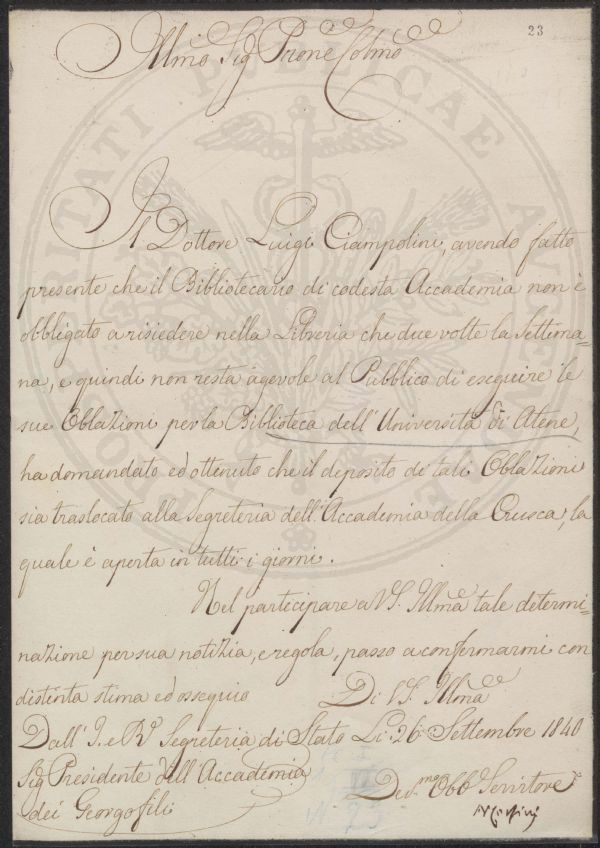 23
Illmo Sig Prone Colmo
Il Dottore Luigi Ciampolini, avendo fatto
presente che il Bibliotecario di codesta Accademia non è
obbligato a risiedere nella Libreria che due volte la Settima=
na, e quindi non resta agevole al Pubblico di eseguire le
sue Oblazioni per la Biblioteca dell'Università di Atene,
ha domandato ed ottenuto che il deposito di tali Oblazioni
sia traslocato alla Segreteria dell'Accademia della Crusca, la
quale è aperta in tutti i giorni.
Nel partecipare a VS. Illma tale determi=
nazione per sua notizia, e regola, passo a confermarmi con
distinta stima ed ossequio
Di VS. Illma
Dall'I. e R. Segreteria di Stato Li 26 Settembre 1840
Sig Presidente dell'Accademia
dei Georgofili
Dev.mo Obb Servitore